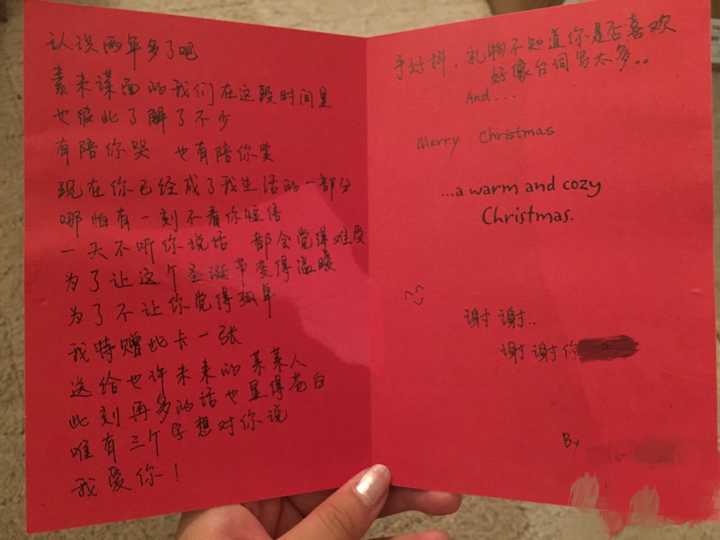 认识两年多了吧
素未谋面的我们在这段时间里
也彼此了解了不少
有陪你哭 也有陪你笑
现在你已经成了我生活的一部分
哪怕有一刻不看你短信
一天不听你说话 都会觉得难受
为了让这个圣诞节变得温暖
为了不让你觉得孤单
我特赠此卡一张
送给也许未来的某某人
此刻再多的话也显得苍白
唯有三个字想对你说
我爱你！
礼物不知道你是否喜欢
好像台词写太多..
And...
Merry Christmas
...a warm and cozy
Christmas.
谢谢..
谢谢你
By